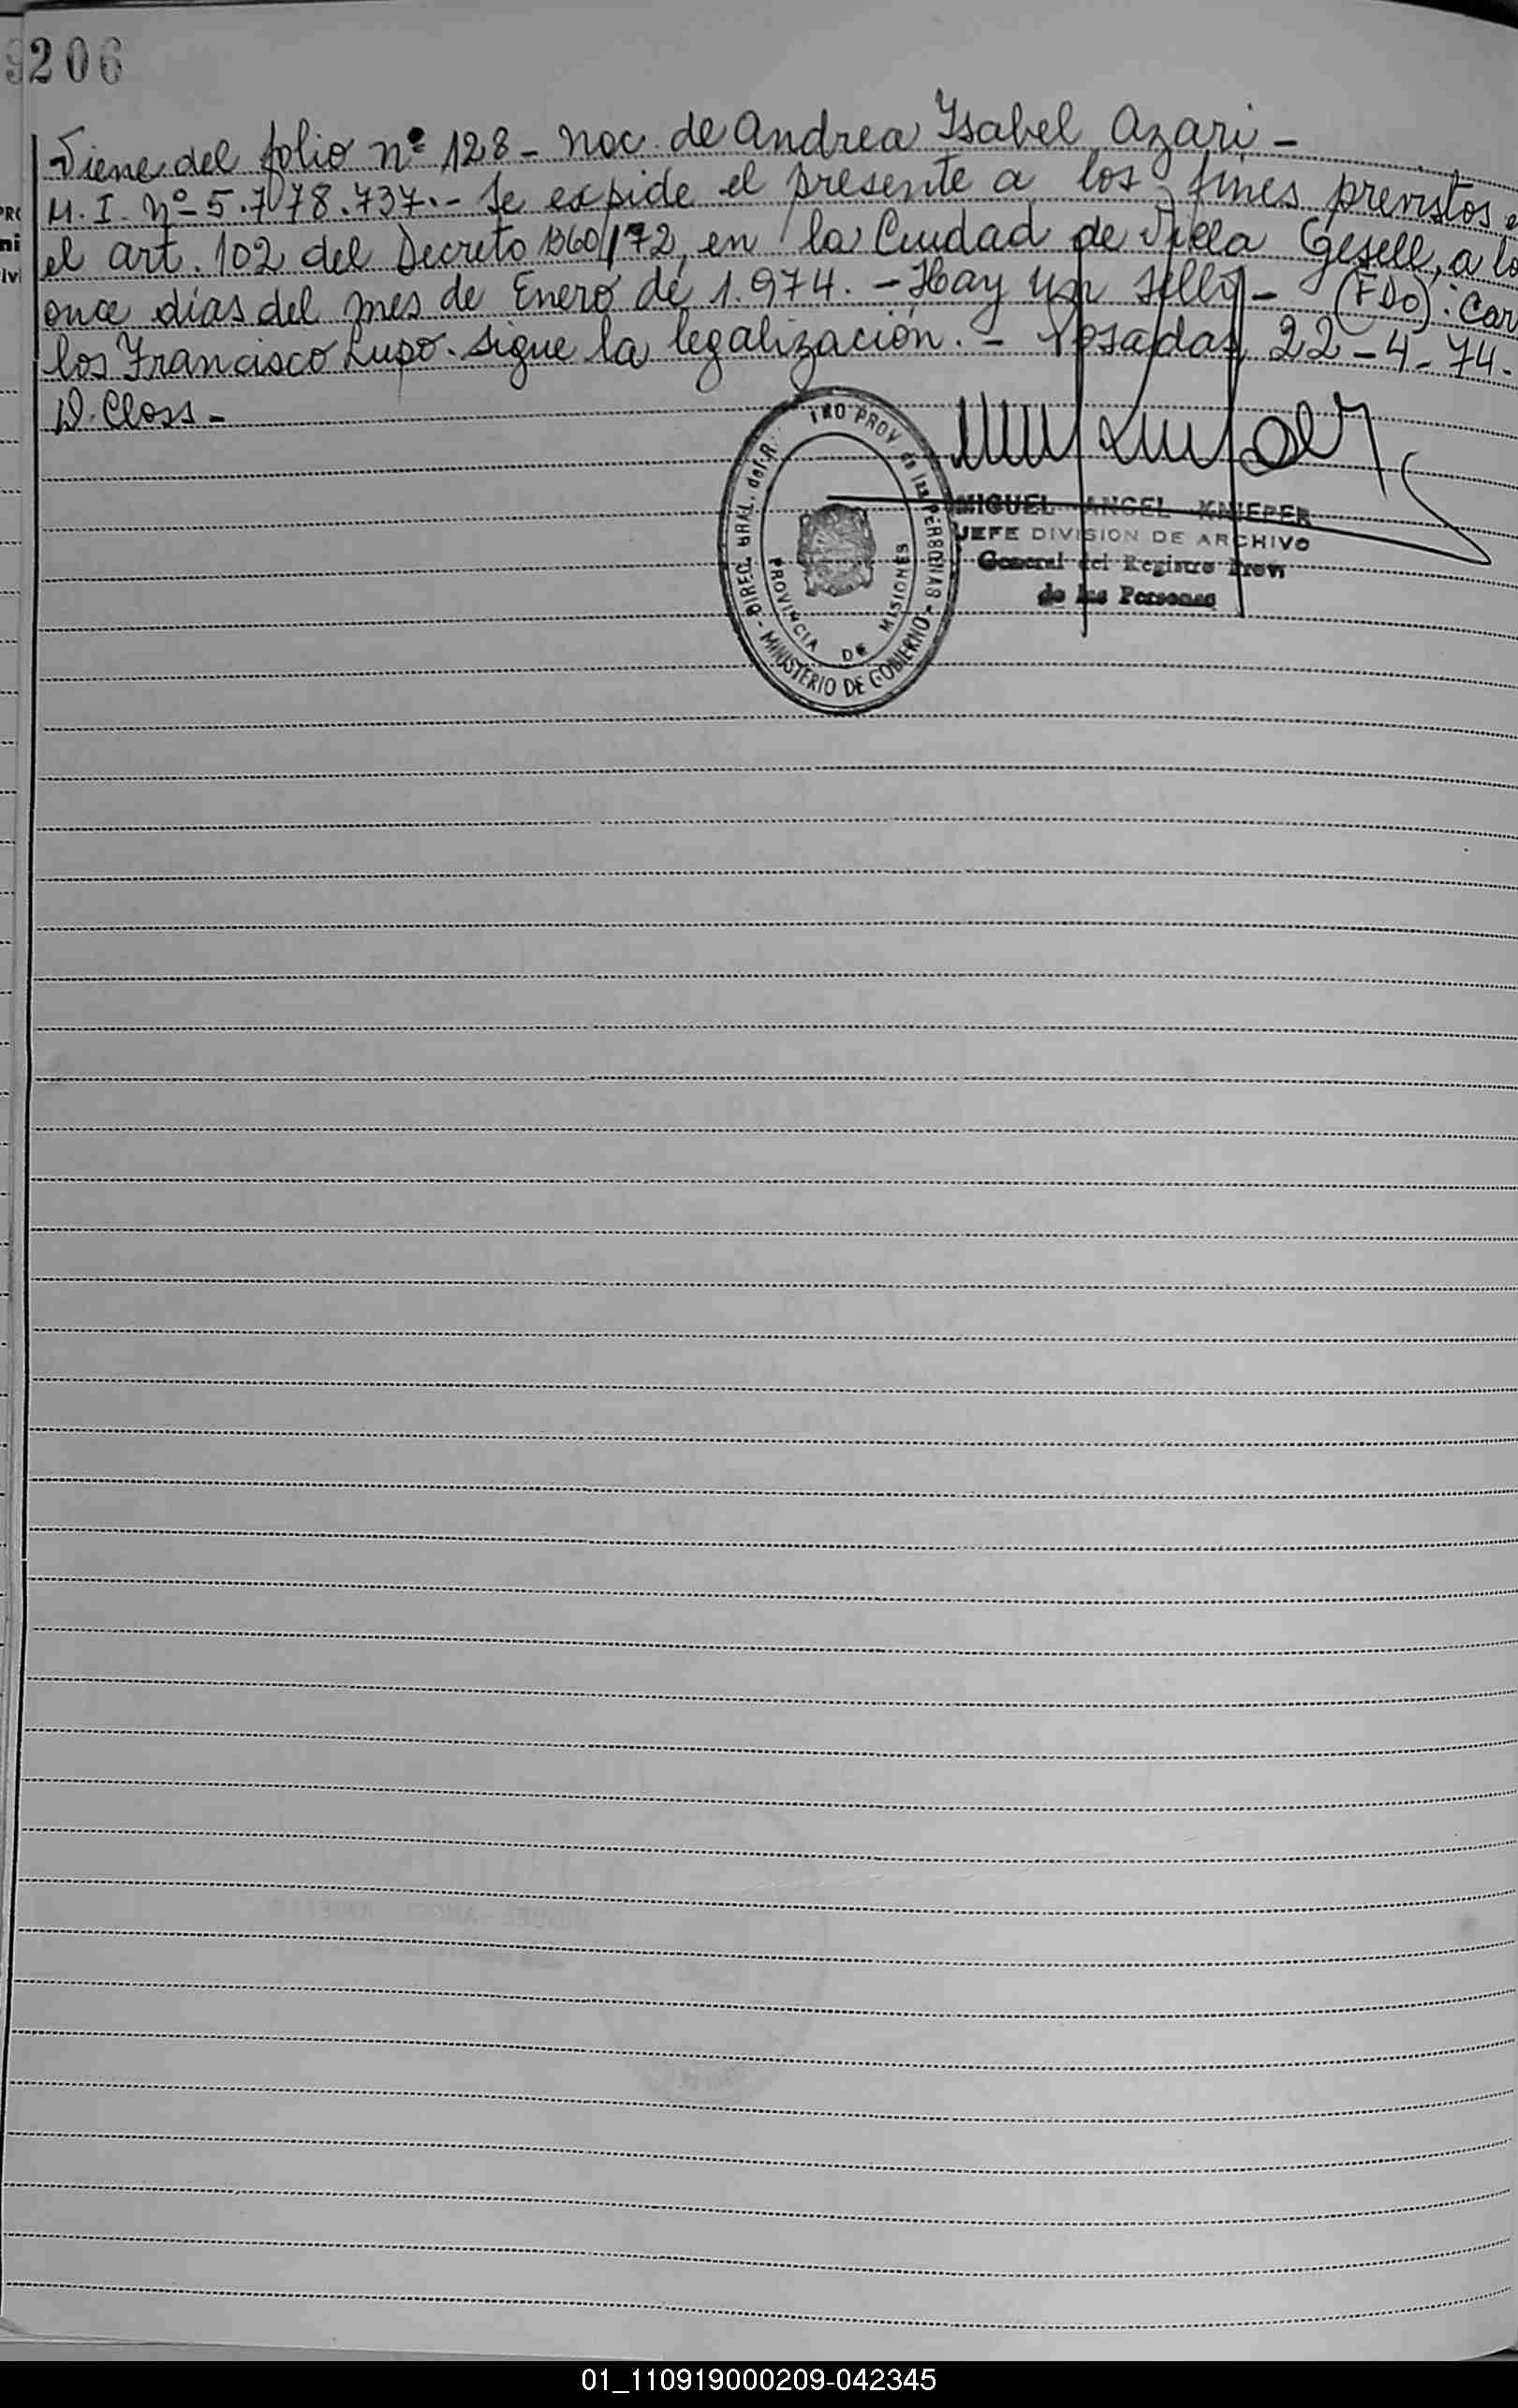 206
Viene del folio nº 128 - Nac. de Andrea Ysabel Azari -
M. I. Nº 5.778.737.- Se expide el presente a los fines previstos e
el art. 102 del Decreto 1360/72, en la Ciudad de Villa Gesell, a lo
once días del mes de Enero de 1.974. - Hay un sello - (FDO): Car
los Francisco Lupo. Sigue la legalización. - Posadas, 22-4-74.
D. Closs -
DIREC. GRAL. del R TRO PROV. de las PERSONAS
- MINISTERIO DE GOBIERNO -
PROVINCIA DE MISIONES
MIGUEL ANGEL KNIEPER
JEFE DIVISION DE ARCHIVO
General del Registro Prov
de las Personas
01_110919000209-042345